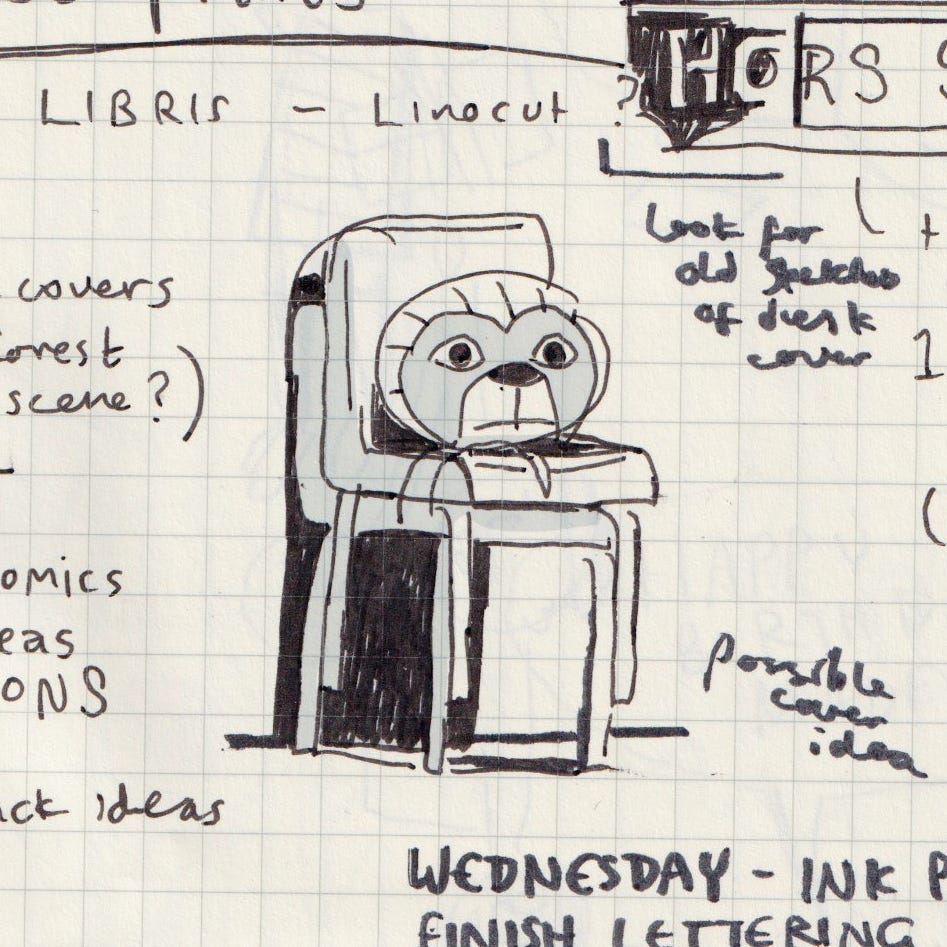 HORS S
LIBRIS - Linocut ?
Look for
old sketches
of desk
cover
covers
forest
scene?)
1
omics
eas
ONS
Possible
cover
idea
ick ideas
WEDNESDAY - INK P
FINISH LETTERING